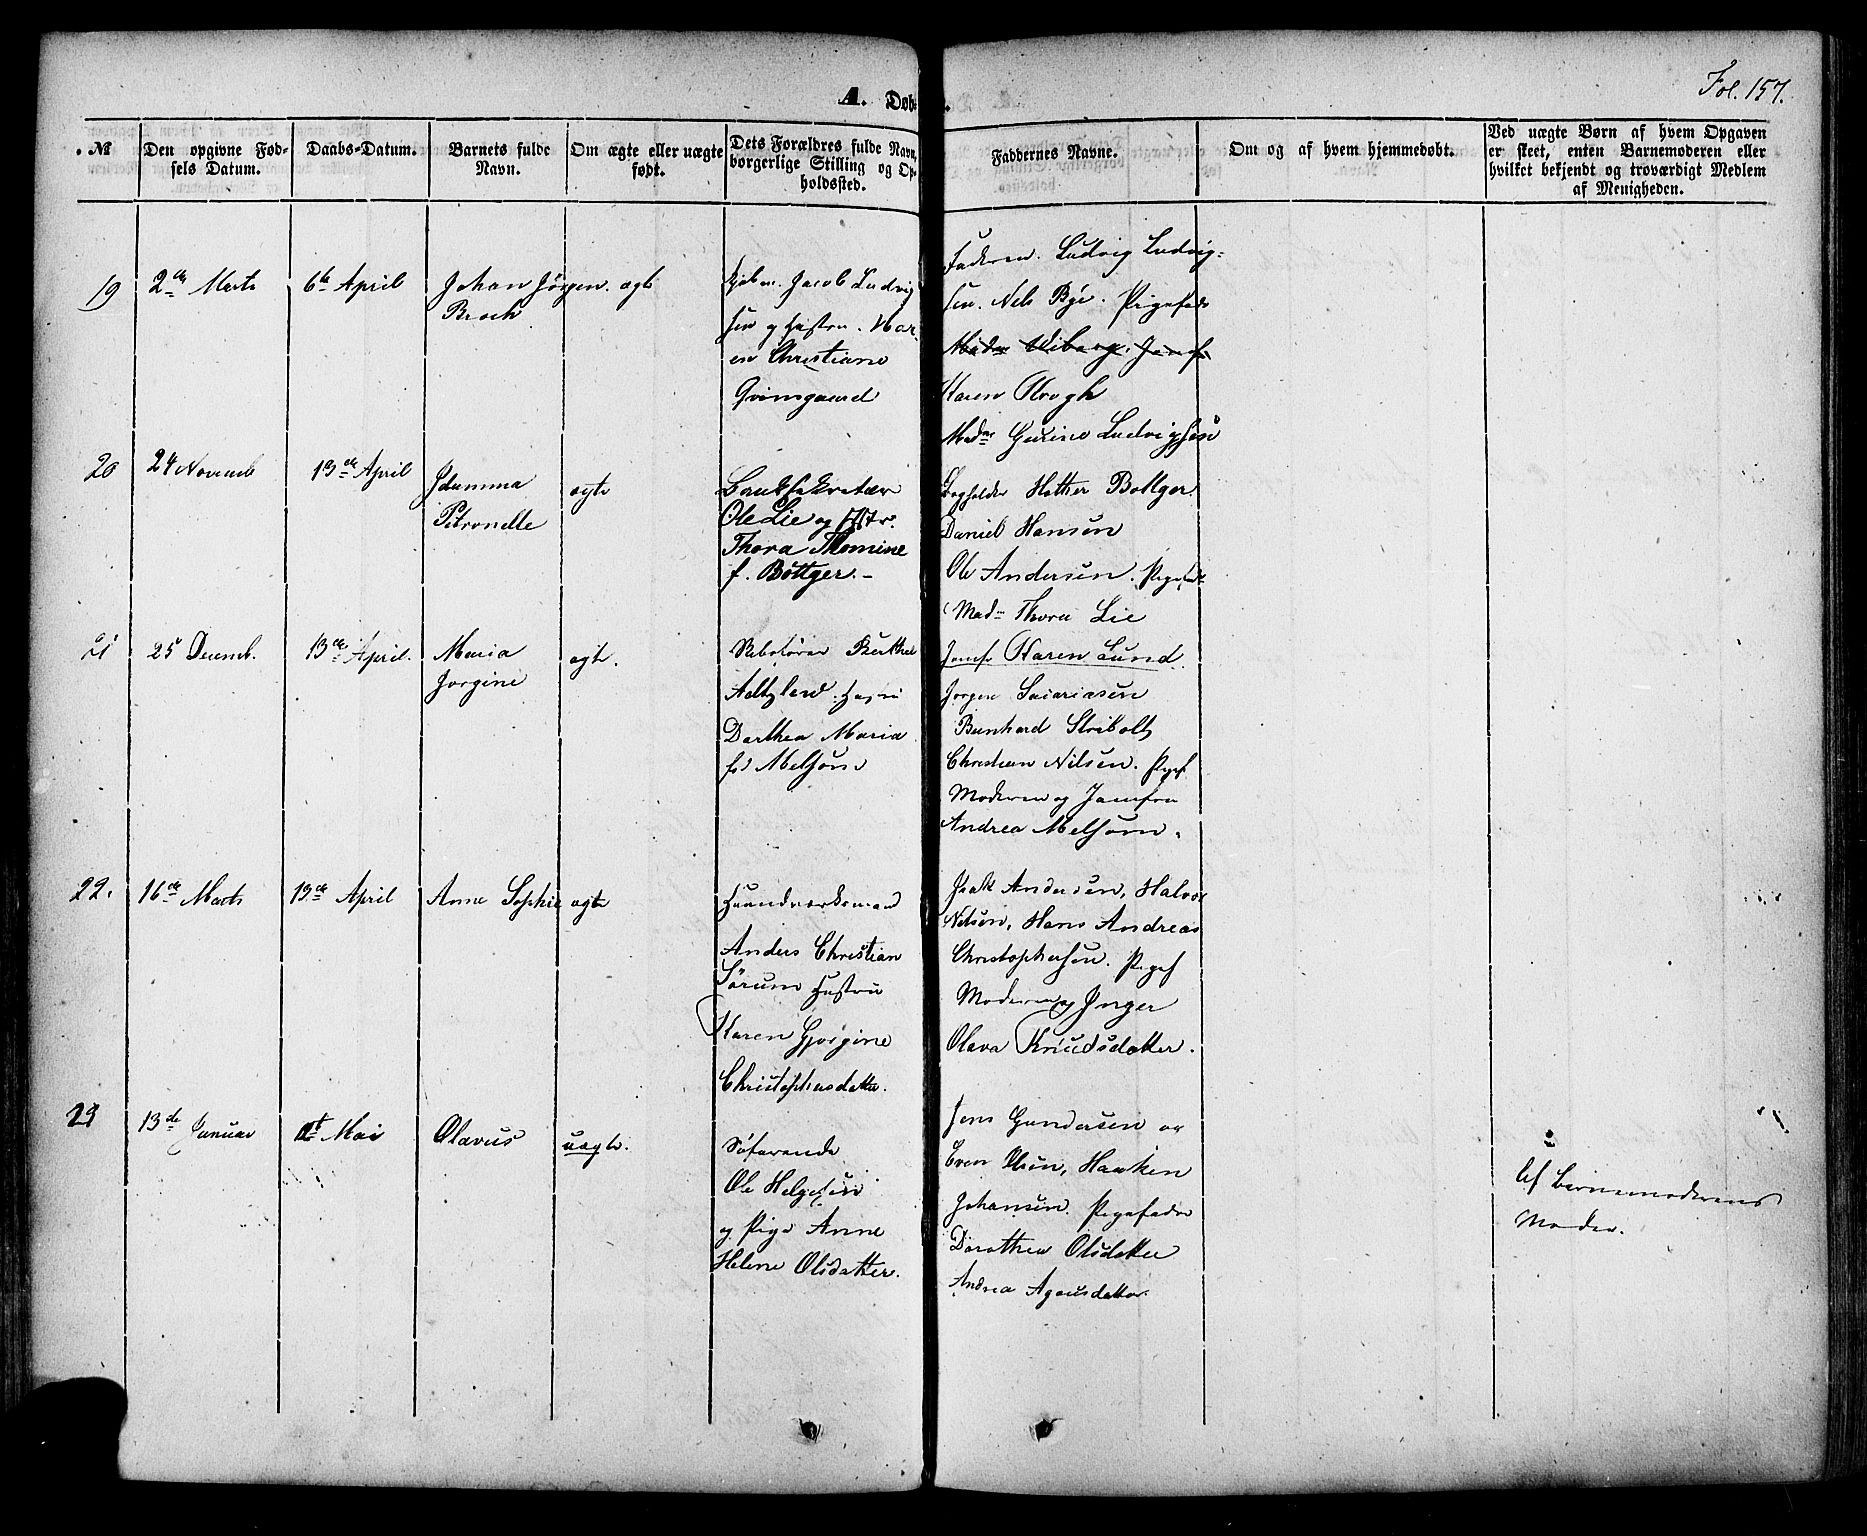 Fol. 157.
A. Døb
.
№
Den opgivne Fød-
sels Datum.
Daabs-Datum.
Barnets fulde
Navn.
Om ægte eller uægte
født.
Dets Forældres fulde Navn,
borgerlige Stilling og Op-
holdssted.
Faddernes Navne.
Om og af hvem hjemmedøbt.
Ved uægte Børn af hvem Opgaven
er skeet, enten Barnemoderen eller
hvilket bekjendt og troværdigt Medlem
af Menigheden.
19
2den Marts
6te April
Johan Jörgen
Broch
ægte
Jacob Ludvig
sen og Hustru Mar
en Christiane
Grimsgaard
Faderen. Ludvig Ludvig=
sen. Nels Bye. Pigefadr
Madm Wiborg. Jomf
Karen Krogh
Madm Gurine Ludvigsen
20
24 Novemb
13de April
Idumma
Petronelle
ægte
Banksekretær
Ole Lie og Hstr.
Thora Thomine
f. Böttger.-
Bogholder Bøttger.
Daniel Hansen
Ole Andersen. Pigefad
Madm Thora Lie
Jomf Karen Lund.
21
25 Decemb.
13de April.
Maria
Jorgine
ægte.
Berthel
Hustru
Dorthea Maria
fød Melsom
Jørgen
Bernhard Stribolt
Christian Nilsen. Pigef
Moderen og Jomfru
Andrea Melsom.
22.
16de Marts
13de April
Anne Sophie
ægte
Haandværksmand
Anders Christian
Sörum Hustru
Karen Gjorgine
Christophersdatter.
Isak Andersen, Halvor
Nilsen, Hans Andreas
Christophersen. Pigef
Moderen og Inger
Olava Knudsdatter.
23
13de Januar
1st Mai
Olavus
uægte.
Söfarende
Ole Helgesen
og Pige Anne
Helene Olsdatter.
Jens Gundersen og
Even Olsen, Haaken
Johansen. Pigefadre
Dorothea Olsdatter
Andrea Agousdatter
Af Barnemoderens
Moder.